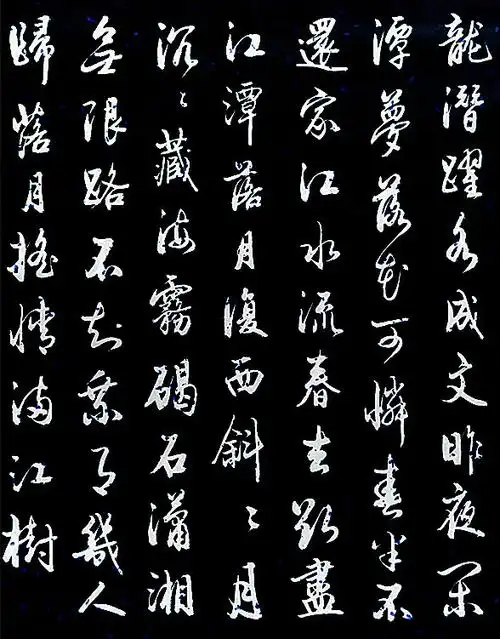 龍潛躍水成文昨夜閑
潭夢落花可憐春半不
還家江水流春去欲盡
江潭落月復西斜〻月
沉〻藏海霧碣石瀟湘
無限路不知乘月幾人
歸落月搖情滿江樹